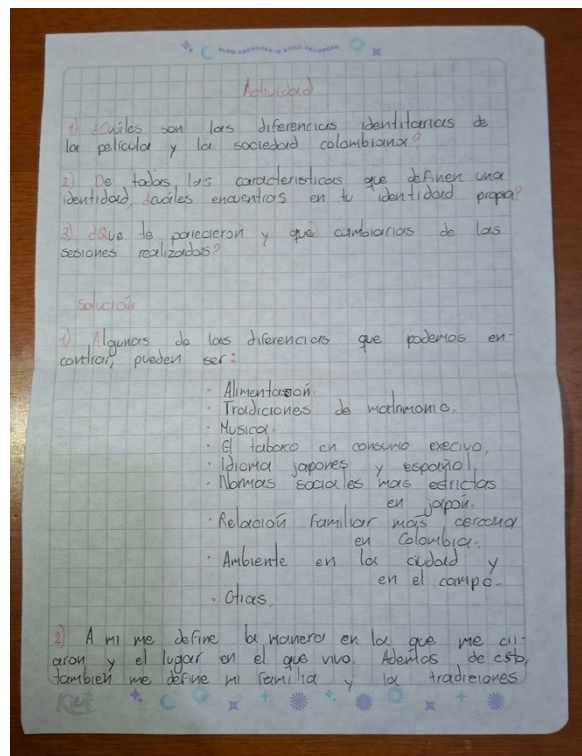 Actividad
1) ¿Cuáles son las diferencias identitarias de
la película y la sociedad colombiana?
2) De todas las características que definen una
identidad, ¿cuáles encuentras en tu identidad propia?
3) ¿Que te parecieron y que cambiarías de las
sesiones realizadas?
Solución
1) Algunas de las diferencias que podemos en-
contrar, pueden ser:
· Alimentación.
· Tradiciones de matrimonio.
· Musica.
· El tabaco en consumo execivo.
· Idioma japones y español.
· Normas sociales mas estrictas
en japón.
· Relación familiar más cercana
en Colombia.
· Ambiente en la ciudad y
en el campo.
· Otras.
2) A mi me define la manera en la que me cri-
aron y el lugar en el que vivo. Además de esto,
tambien me define mi familia y la tradiciones